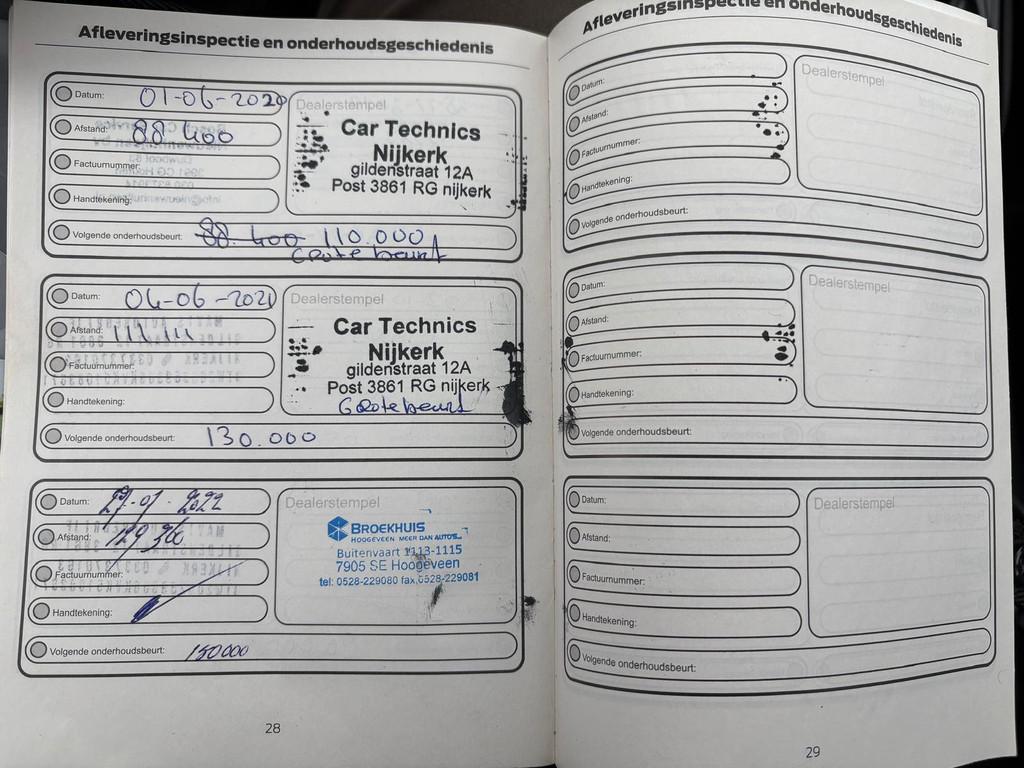 Afleveringsinspectie en onderhoudsgeschiedenis
Datum: 01-06-2020
Afstand: 88 400
Factuurnummer:
Handtekening:
Volgende onderhoudsbeurt: 88.400 110.000
Grote beurt
Dealerstempel
Car Technics
Nijkerk
gildenstraat 12A
Post 3861 RG nijkerk
Datum: 04-06-2021
Afstand: 111.111
Factuurnummer:
Handtekening:
Volgende onderhoudsbeurt: 130.000
Dealerstempel
Car Technics
Nijkerk
gildenstraat 12A
Post 3861 RG nijkerk
Grote beurt
Datum: 27-01-2022
Afstand: 129 360
Factuurnummer:
Handtekening:
Volgende onderhoudsbeurt: 150000
Dealerstempel
BROEKHUIS
HOOGEVEEN MEER DAN AUTO'S...
Buitenvaart 1113-1115
7905 SE Hoogeveen
tel: 0528-229080 fax.0528-229081
28
Afleveringsinspectie en onderhoudsgeschiedenis
Datum:
Afstand:
Factuurnummer:
Handtekening:
Volgende onderhoudsbeurt:
Dealerstempel
Datum:
Afstand:
Factuurnummer:
Handtekening:
Volgende onderhoudsbeurt:
Dealerstempel
Datum:
Afstand:
Factuurnummer:
Handtekening:
Volgende onderhoudsbeurt:
Dealerstempel
29